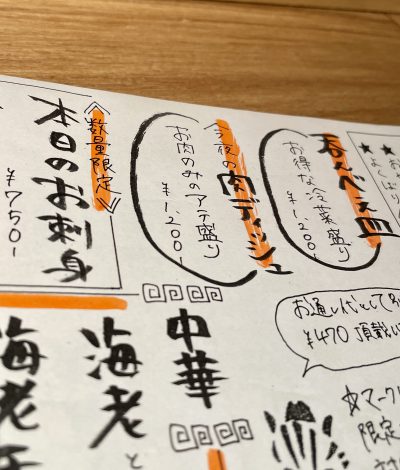 呑んべえ皿
お得な冷菜盛り
¥1,200-
今夜の肉ディッシュ
お肉のみのアテ盛り
¥1,200-
《数量限定》
本日のお刺身
¥750-
お通し代として
¥470 頂戴い
中華
海老と
海老
☆マーク
限定